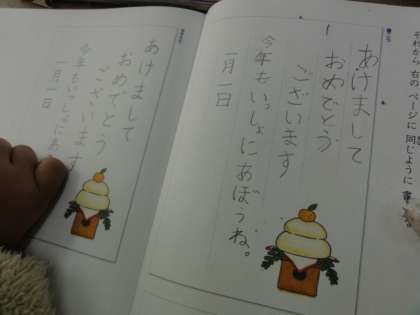 それから 右の ページに 同じように 書
あけまして
おめでとう
ございます
今年もいっしょにあぼうね。
一月一日
あけまして
おめでとう
ございます
今年もいっしょにあ
一月一日